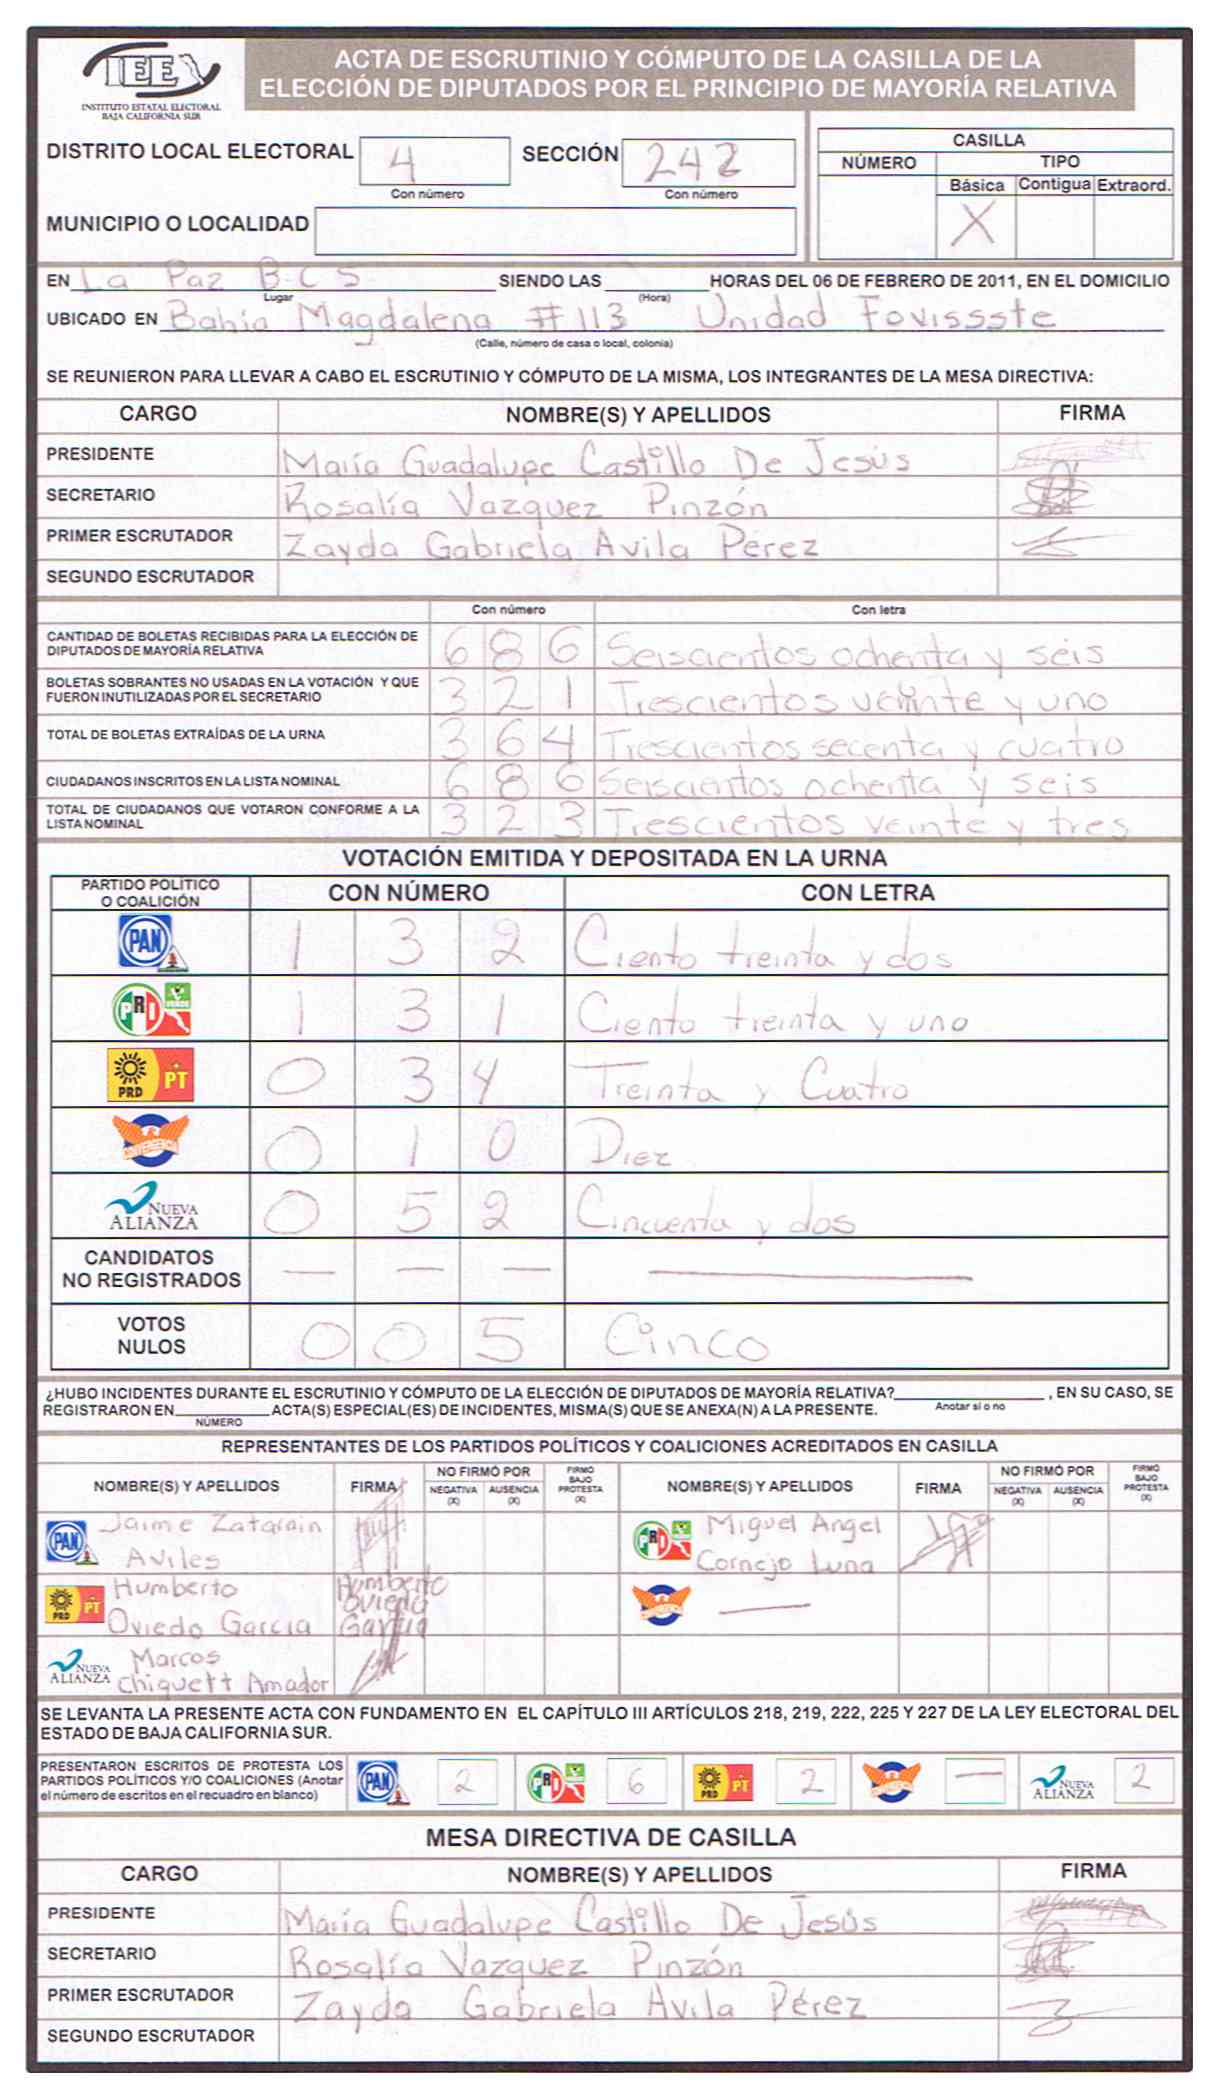 IEE
INSTITUTO ESTATAL ELECTORAL
BAJA CALIFORNIA SUR
ACTA DE ESCRUTINIO Y CÓMPUTO DE LA CASILLA DE LA
ELECCIÓN DE DIPUTADOS POR EL PRINCIPIO DE MAYORÍA RELATIVA
DISTRITO LOCAL ELECTORAL 4 SECCIÓN 242
Con número Con número
MUNICIPIO O LOCALIDAD
CASILLA
NÚMERO TIPO
Básica Contigua Extraord.
X
EN La Paz B.C.S SIENDO LAS HORAS DEL 06 DE FEBRERO DE 2011, EN EL DOMICILIO
Lugar (Hora)
UBICADO EN Bahía Magdalena #113 Unidad Fovissste
(Calle, número de casa o local, colonia)
SE REUNIERON PARA LLEVAR A CABO EL ESCRUTINIO Y CÓMPUTO DE LA MISMA, LOS INTEGRANTES DE LA MESA DIRECTIVA:
CARGO NOMBRE(S) Y APELLIDOS FIRMA
PRESIDENTE María Guadalupe Castillo De Jesús
SECRETARIO Rosalía Vazquez Pinzón
PRIMER ESCRUTADOR Zayda Gabriela Avila Pérez
SEGUNDO ESCRUTADOR
Con número Con letra
CANTIDAD DE BOLETAS RECIBIDAS PARA LA ELECCIÓN DE
DIPUTADOS DE MAYORÍA RELATIVA 6 8 6 Seiscientos ochenta y seis
BOLETAS SOBRANTES NO USADAS EN LA VOTACIÓN Y QUE
FUERON INUTILIZADAS POR EL SECRETARIO 3 2 1 Trescientos veinte y uno
TOTAL DE BOLETAS EXTRAÍDAS DE LA URNA 3 6 4 Trescientos secenta y cuatro
CIUDADANOS INSCRITOS EN LA LISTA NOMINAL 6 8 6 Seiscientos ochenta y seis
TOTAL DE CIUDADANOS QUE VOTARON CONFORME A LA
LISTA NOMINAL 3 2 3 Trescientos veinte y tres
VOTACIÓN EMITIDA Y DEPOSITADA EN LA URNA
PARTIDO POLÍTICO
O COALICIÓN CON NÚMERO CON LETRA
PAN 1 3 2 Ciento treinta y dos
PRI VERDE 1 3 1 Ciento treinta y uno
PRD PT 0 3 4 Treinta y Cuatro
CONVERGENCIA 0 1 0 Diez
NUEVA ALIANZA 0 5 2 Cincuenta y dos
CANDIDATOS
NO REGISTRADOS — — — —
VOTOS
NULOS 0 0 5 Cinco
¿HUBO INCIDENTES DURANTE EL ESCRUTINIO Y CÓMPUTO DE LA ELECCIÓN DE DIPUTADOS DE MAYORÍA RELATIVA? , EN SU CASO, SE
Anotar sí o no
REGISTRARON EN ACTA(S) ESPECIAL(ES) DE INCIDENTES, MISMA(S) QUE SE ANEXA(N) A LA PRESENTE.
NÚMERO
REPRESENTANTES DE LOS PARTIDOS POLÍTICOS Y COALICIONES ACREDITADOS EN CASILLA
NOMBRE(S) Y APELLIDOS FIRMA NO FIRMÓ POR NEGATIVA (X) AUSENCIA (X) FIRMÓ BAJO PROTESTA (X) NOMBRE(S) Y APELLIDOS FIRMA NO FIRMÓ POR NEGATIVA (X) AUSENCIA (X) FIRMÓ BAJO PROTESTA (X)
PAN Jaime Zatarain PRI Miguel Angel
Aviles Cornejo Luna
PRD PT Humberto Humberto CONVERGENCIA —
Oviedo García Oviedo
García
NUEVA ALIANZA Marcos
Chiquett Amador
SE LEVANTA LA PRESENTE ACTA CON FUNDAMENTO EN EL CAPÍTULO III ARTÍCULOS 218, 219, 222, 225 Y 227 DE LA LEY ELECTORAL DEL
ESTADO DE BAJA CALIFORNIA SUR.
PRESENTARON ESCRITOS DE PROTESTA LOS
PARTIDOS POLÍTICOS Y/O COALICIONES (Anotar
el número de escritos en el recuadro en blanco)
PAN 2 PRI 6 PRD PT 2 CONVERGENCIA — NUEVA ALIANZA 2
MESA DIRECTIVA DE CASILLA
CARGO NOMBRE(S) Y APELLIDOS FIRMA
PRESIDENTE María Guadalupe Castillo De Jesús
SECRETARIO Rosalía Vazquez Pinzón
PRIMER ESCRUTADOR Zayda Gabriela Avila Pérez
SEGUNDO ESCRUTADOR